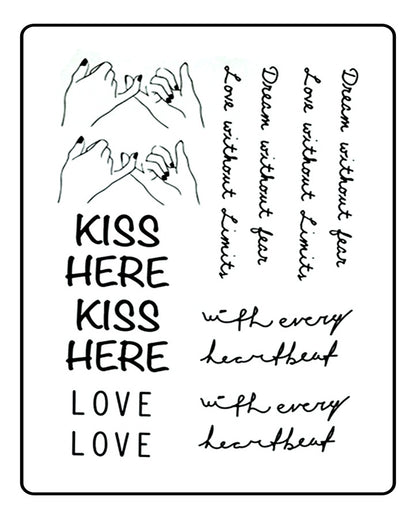 Dream without fear
Love without Limits
Dream without fear
Love without Limits
KISS
HERE
KISS
HERE
with every
heartbeat
with every
heartbeat
LOVE
LOVE